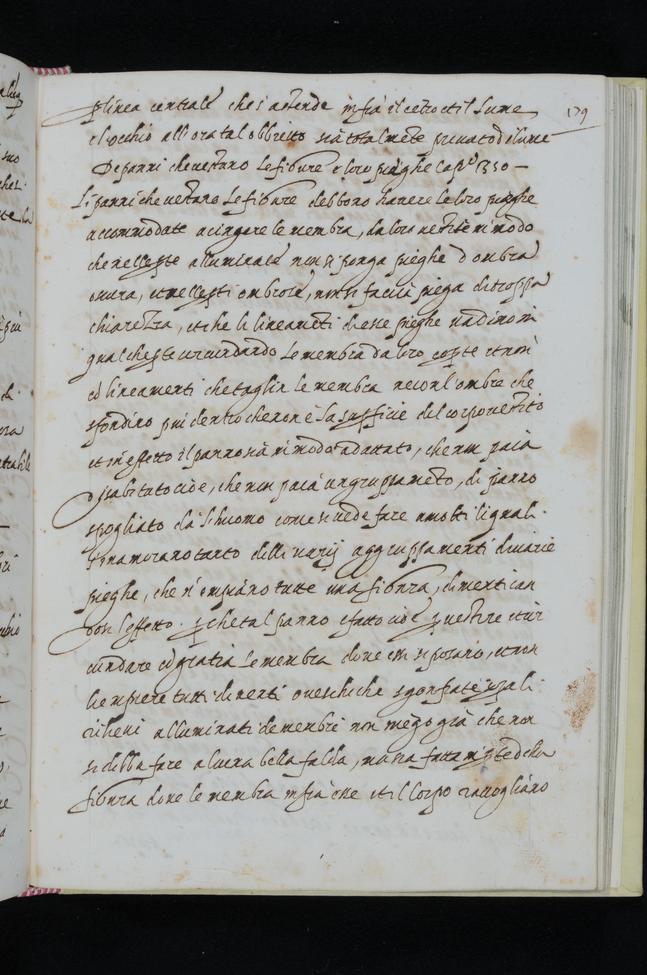 p linea centrale che s'astende infra il cetro et il Lume
el'occhio all'ora tal obbietto sia totalmete privato di lume
De panni che vestano Le figure e loro pieghe Cap.º 350 —
Li panni che vestano Le figure debbono havere le loro pieghe
accommodate a cingere le membra, da loro vestite in modo
che nelle pte alluminate non si ponga pieghe d'ombra
oscura, et nelle pti ombrose, non si facia piega di troppa
chiarezza, et che li lineameti di esse pieghe vadino in
qualche pte circundando Le membra da loro coperte et non
cō lineamenti che taglin le membra ne con l'ombre che
sfondino più dentro che non è la supficie del corpo vestito
et in effetto il panno sia in modo adattato, che non paia
disabitato cioè, che non paia un gruppameto, di panno
spogliato da l'huomo come si vede fare a molti li quali
s'inamorano tanto delli varij aggruppamenti di varie
pieghe, che n'empiano tutta una figura, dimentican
dosi l'effetto. p che tal panno è fatto cioè p vestire et cir
cundare cō gratia Le membra dove essi si posano, et non
li empiere tutti di venti o vesciche sgonfiate
rilievi alluminati de membri non nego già che non
si debba fare alcuna bella falda, ma sia fatta in pte della
figura dove le membra infra esse et il Corpo raccogliano
179